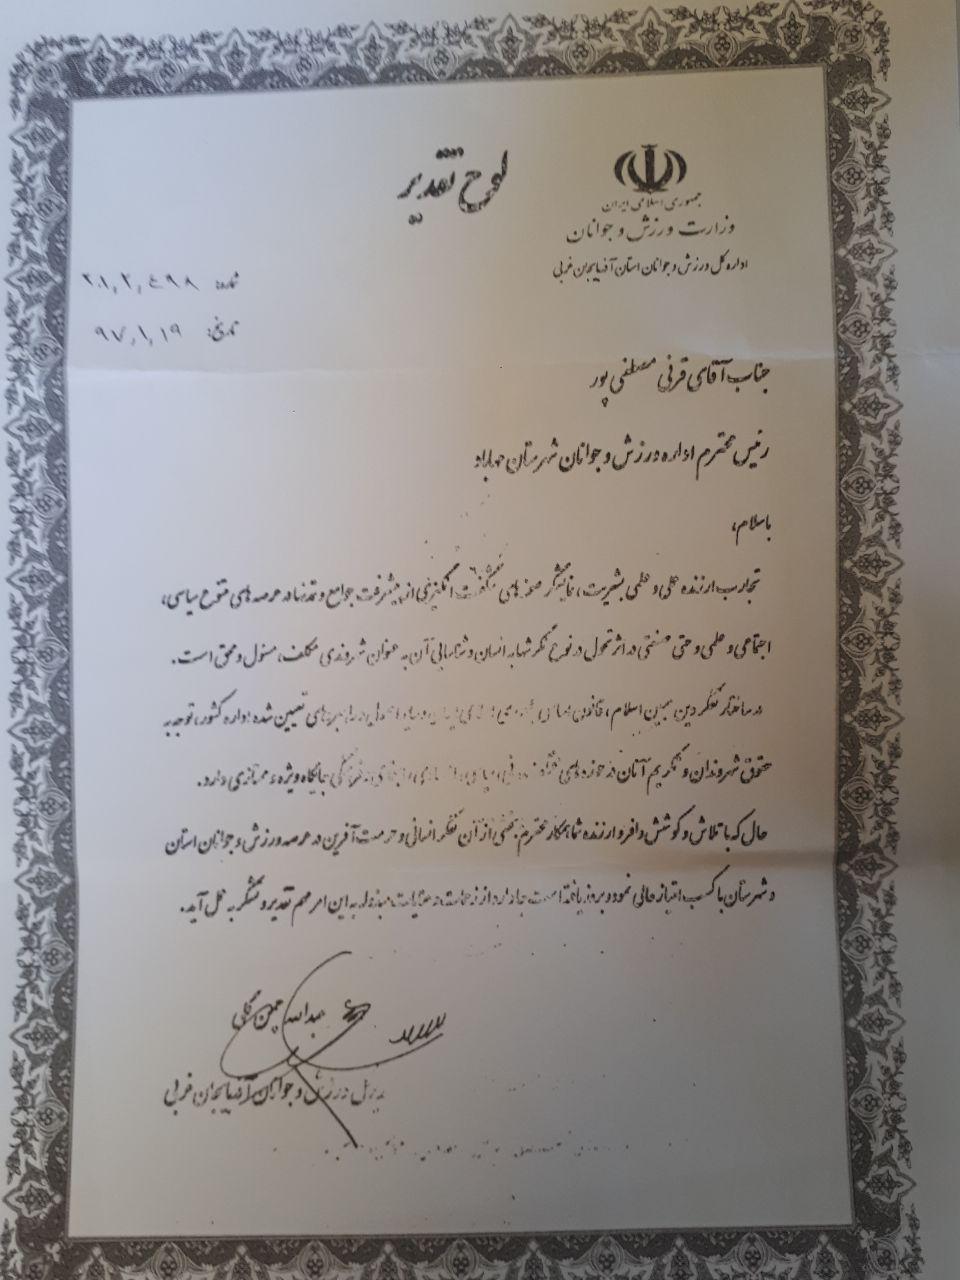 لوح تقدیر
جمهوری اسلامی ایران
وزارت ورزش و جوانان
اداره کل ورزش و جوانان استان آذربایجان غربی
شماره: ۲۸,۲,۴۹۸
تاریخ: ۹۷,۱,۱۹
جناب آقای قرنی مصطفی پور
رئیس محترم اداره ورزش و جوانان شهرستان مهاباد
باسلام،
تجارب ارزنده عملی و علمی بشریت، نمایشگر صحنه های شگفت انگیزی از پیشرفت جوامع و تمدنها در عرصه های متنوع سیاسی،
اجتماعی و علمی و حتی صنعتی در اثر تحول در نوع نگرشها به انسان و شناسایی آن به عنوان شهروندی مکلف، مسئول و محق است.
در ساختار تفکر دین مبین اسلام، قانون اساسی جمهوری اسلامی ایران و راهبردهای تعیین شده اداره کشور، توجه به
حقوق شهروندان و تکریم آنان در حوزه های فرهنگی جایگاه ویژه و ممتازی دارد.
حال که با تلاش و کوشش وافر و ارزنده شما همکار محترم، بخشی از آن تفکر انسانی و حرمت آفرین در عرصه ورزش و جوانان استان
و شهرستان با کسب امتیاز عالی نمود و بروز یافته است جا دارد از زحمات و عنایات مبذوله به این امر مهم تقدیر و تشکر به عمل آید.
عبدالله چمن گلی
مدیرکل ورزش و جوانان آذربایجان غربی